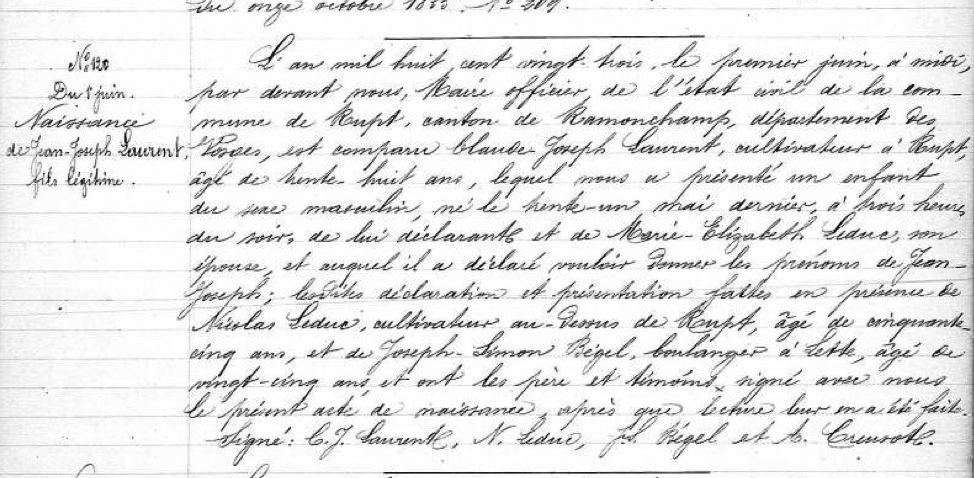 du onze octobre 1833. N° 209.
N° 120
Du 1er juin.
Naissance
de Jean-Joseph Laurent,
fils légitime.
L'an mil huit cent vingt-trois, le premier juin, à midi,
par devant nous, Maire officier de l'état civil de la com-
mune de Rupt, canton de Ramonchamp, département des
Vosges, est comparu Claude Joseph Laurent, cultivateur à Rupt,
âgé de trente-huit ans, lequel nous a présenté un enfant
du sexe masculin, né le trente-un mai dernier, à trois heures
du soir, de lui déclarant et de Marie-Elizabeth Leduc, son
épouse, et auquel il a déclaré vouloir donner les prénoms de Jean-
Joseph; lesdites déclaration et présentation faites en présence de
Nicolas Leduc, cultivateur au-dessus de Rupt, âgé de cinquante-
cinq ans, et de Joseph-Simon Bégel, boulanger à Lette, âgé de
vingt-cinq ans, et ont les père et témoins signé avec nous
le présent acte de naissance, après que lecture leur en a été faite.
Signé: C. J. Laurent, N. Leduc, J. S. Bégel et A. Creusot.